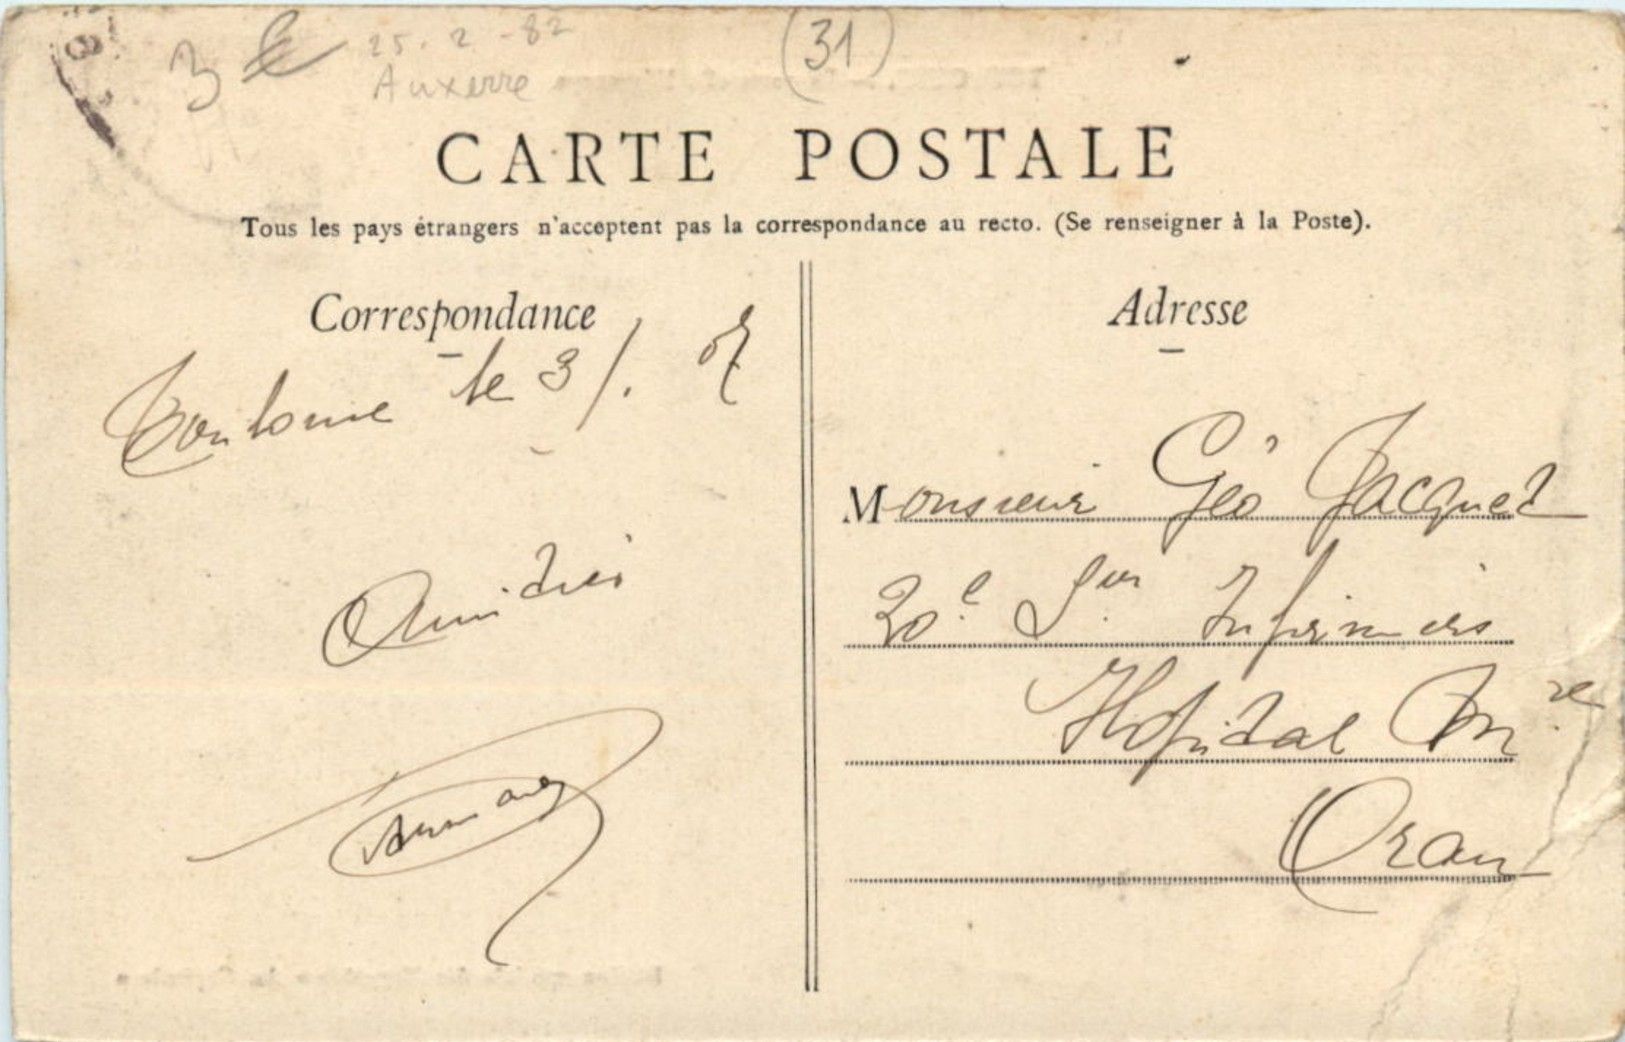 3
25.2-82
(31)
Auxerre
CARTE POSTALE
Tous les pays étrangers n'acceptent pas la correspondance au recto. (Se renseigner à la Poste).
Correspondance
Toulouse le 3/. 07
Amitiés
Adresse
Monsieur Géo Jacquet
20e Son Infirmiers
Hôpital Mre
Oran